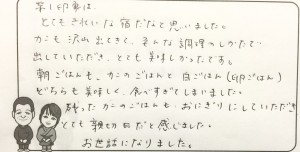 第1印象は、
とてもきれいな宿だなと思いました。
カニも沢山出てきて、色んな調理のしかたで
出していただき、とても美味しかったです。
朝ごはんも、カニのごはんと白ごはん(卵ごはん)
どちらも美味しく、食べすぎてしまいました。
残ったカニのごはんも、おにぎりにしていただき
とても親切だと感じました。
お世話になりました。